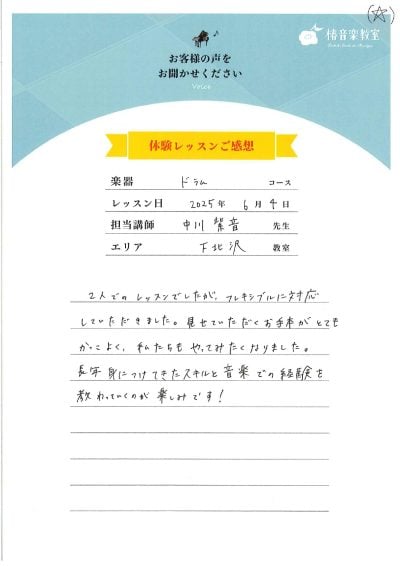 (☆)
お客様の声を
お聞かせください
Voice
椿音楽教室
体験レッスンご感想
楽器 ドラム コース
レッスン日 2025年 6月 4日
担当講師 中川 馨音 先生
エリア 下北沢 教室
2人でのレッスンでしたが、フレキシブルに対応
していただきました。見せていただくお手本がとても
かっこよく、私たちもやってみたくなりました。
長年身につけてきたスキルと音楽での経験を
教わっていくのが楽しみです!